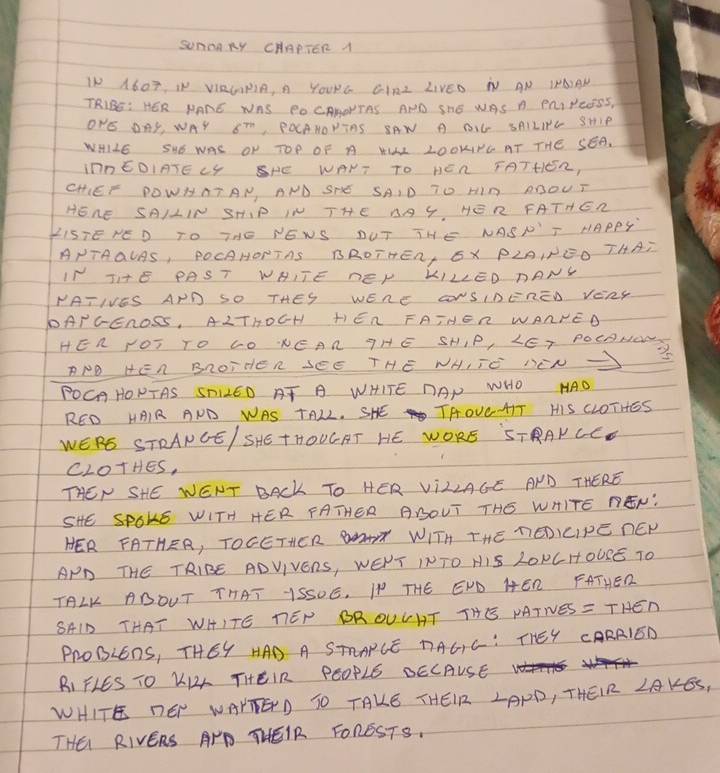 SUMMARY CHAPTER 1
IN 1607, IN VIRGINIA, A YOUNG GIRL LIVED IN AN INDIAN
TRIBE: HER NAME WAS POCAHONTAS AND SHE WAS A PRINCESS.
ONE DAY, MAY 6TH, POCAHONTAS SAW A BIG SAILING SHIP
WHILE SHE WAS ON TOP OF A HILL LOOKING AT THE SEA.
IMMEDIATELY SHE WANT TO HER FATHER,
CHIEF POWHATAN, AND SHE SAID TO HIM ABOUT
HERE SAILIN SHIP IN THE BAY. HER FATHER
LISTENED TO THE NEWS BUT THE WASN'T HAPPY
ANTAQUAS, POCAHONTAS BROTHER, EXPLAINED THAT
IN THE PAST WHITE MEN KILLED MANY
NATIVES AND SO THEY WERE CONSIDERED VERY
DANGEROSS. ALTHOGH HER FATHER WARNED
HER NOT TO GO NEAR THE SHIP, LET POCAHONTAS
AND HER BROTHER SEE THE WHITE MEN →
POCAHONTAS SMILED AT A WHITE MAN WHO HAD
RED HAIR AND WAS TALL. SHE THOUGHT HIS CLOTHES
WERE STRANGE/SHE THOUGHT HE WORE STRANGE
CLOTHES.
THEN SHE WENT BACK TO HER VILLAGE AND THERE
SHE SPOKE WITH HER FATHER ABOUT THE WHITE MEN:
HER FATHER, TOGETHER WITH THE MEDICINE MEN
AND THE TRIBE ADVIVERS, WENT INTO HIS LONGHOUSE TO
TALK ABOUT THAT ISSUE. IN THE END HER FATHER
SAID THAT WHITE MEN BROUGHT THE NATIVES = THEM
PROBLEMS, THEY HAD A STRANGE MAGIC: THEY CARRIED
RIFLES TO KILL THEIR PEOPLE BECAUSE
WHITE MEN WANTED TO TAKE THEIR LAND, THEIR LAKES,
THEI RIVERS AND THEIR FORESTS.